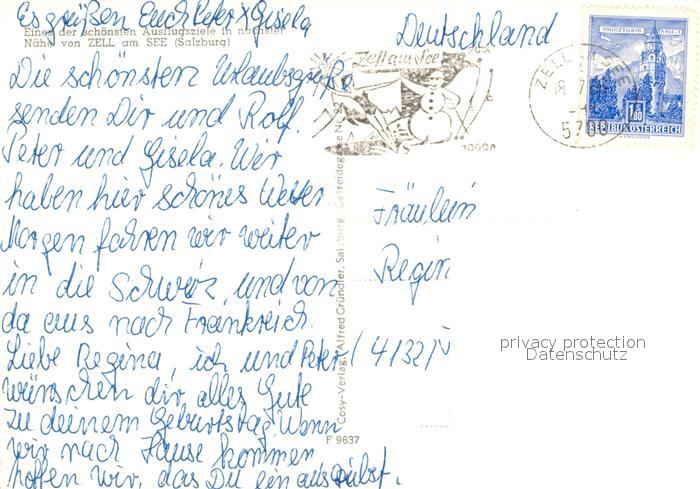 Es grüßen Euch Peter & Gisela
Eines der schönsten Ausflugsziele in nächster
Nähe von ZELL am SEE (Salzburg)
Die schönsten Urlaubsgrüße
senden Dir und Rolf.
Peter und Gisela. Wir
haben hier schönes Wetter
Morgen fahren wir weiter
in die Schweiz, und von
da aus nach Frankreich.
Liebe Regina, ich und Peter
wünschen dir alles Gute
zu deinem Geburtstag. Wann
wir nach Hause kommen
hoffen wir, das Du ein
Cosy-Verlag, Alfred Gründler, Salzburg, Getreidegasse
F 9637
Deutschland
Zell am See
ZELL AM SEE
18.7.
MÜNZTURM HALL I. T.
1.80
REPUBLIK ÖSTERREICH
Fräulein
Regin
(4132)
privacy protection
Datenschutz